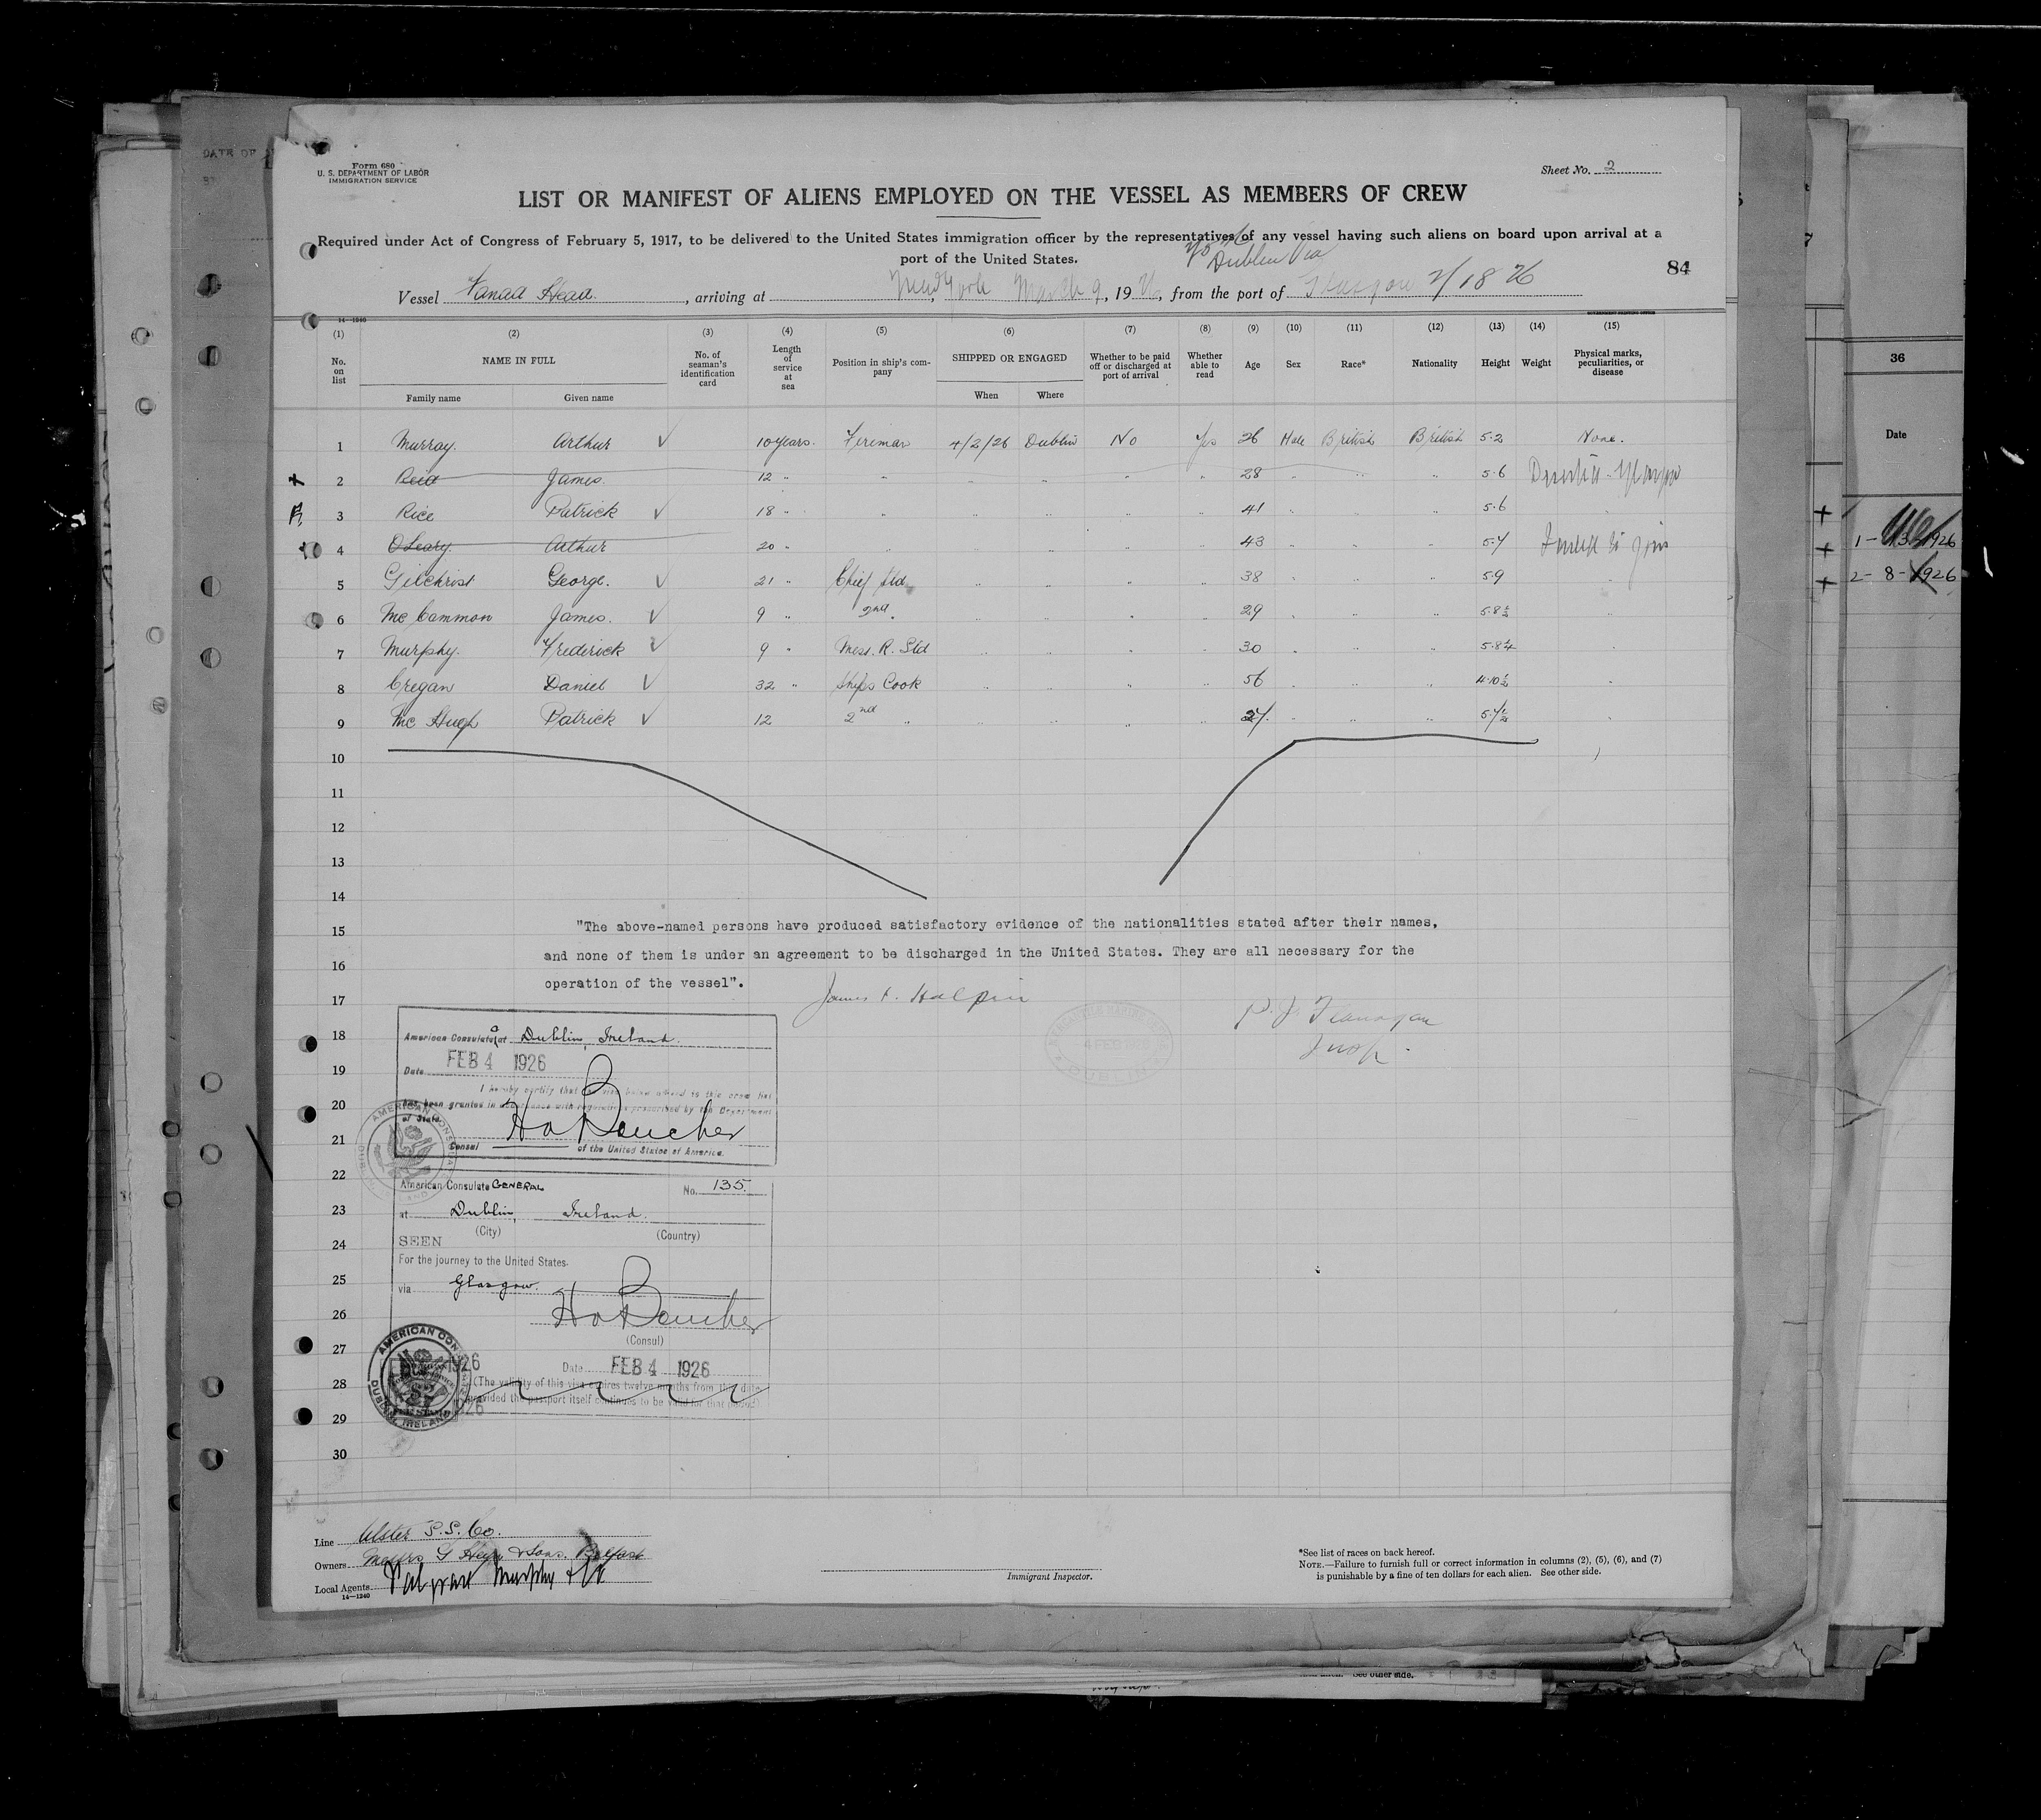 DATE OF
Form 680
U. S. DEPARTMENT OF LABOR
IMMIGRATION SERVICE
Sheet No. 2
LIST OR MANIFEST OF ALIENS EMPLOYED ON THE VESSEL AS MEMBERS OF CREW
Required under Act of Congress of February 5, 1917, to be delivered to the United States immigration officer by the representatives of any vessel having such aliens on board upon arrival at a
port of the United States.
Dublin Via
84
Vessel Fanad Head. , arriving at New York March 9, 1926, from the port of Glasgow 2/18 26
14-1240
(1) (2) (3) (4) (5) (6) (7) (8) (9) (10) (11) (12) (13) (14) (15)
No. on list NAME IN FULL No. of seaman's identification card Length of service at sea Position in ship's company SHIPPED OR ENGAGED Whether to be paid off or discharged at port of arrival Whether able to read Age Sex Race* Nationality Height Weight Physical marks, peculiarities, or disease
Family name Given name When Where
1 Murray. Arthur ✓ 10 years. Fireman 4/2/26 Dublin No Yes 26 Male British British 5.2 None.
+ 2 Reid James. 12 " " " " " " 28 " " " 5.6 Deserted Glasgow
3 Rice Patrick ✓ 18 " " " " " " 41 " " " 5.6 "
4 O'Leary. Arthur 20 " " " " " " 43 " " " 5.7 Failed to join
5 Gilchrist George. ✓ 21 " Chief Std. " " " " 38 " " " 5.9 "
6 McCammon James. ✓ 9 " 2nd " " " " " 29 " " " 5.8½ "
7 Murphy. Frederick ✓ 9 " Mess. R. Std " " " " 30 " " " 5.8¼
8 Cregan Daniel ✓ 32 " Ships Cook " " " " 56 " " " 4.10½ "
9 McHugh Patrick ✓ 12 2nd " " " " " 27. " " " 5.7½ "
10
11
12
13
14
15 "The above-named persons have produced satisfactory evidence of the nationalities stated after their names,
and none of them is under an agreement to be discharged in the United States. They are all necessary for the
16
operation of the vessel".
17 James F. Halpin P. J. Flanagan
18 American Consulate at Dublin, Ireland.
4 FEB 1926
DUBLIN
19 Date FEB 4 1926
I hereby certify that the visa being affixed to this crew list
20 has been granted in accordance with regulations prescribed by the Department
of State.
21 Consul of the United States of America.
22 American Consulate GENERAL No. 135.
23 at Dublin, Ireland.
(City) (Country)
24 SEEN
For the journey to the United States.
25 via Glasgow.
26
(Consul)
27
AMERICAN CON
DUBLIN, IRELAND
1926
Date FEB 4 1926
28 (The validity of this visa expires twelve months from this date
provided the passport itself continues to be valid for that period).
29
1926
30
Line Ulster S.S. Co.
Owners Messrs G Heyn & Sons. Belfast
Local Agents Palgrave Murphy & Co
14-1240
Immigrant Inspector.
*See list of races on back hereof.
NOTE.—Failure to furnish full or correct information in columns (2), (5), (6), and (7)
is punishable by a fine of ten dollars for each alien. See other side.
36
Date
1926
2-8-1926
See other side.